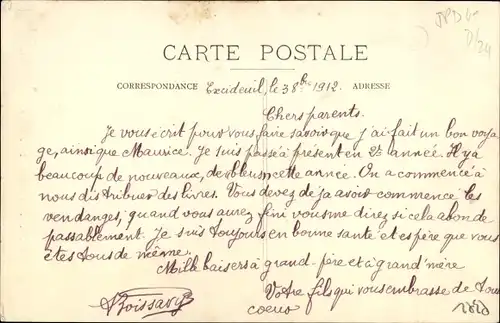 CARTE POSTALE
CORRESPONDANCE
ADRESSE
Excideuil, le 3 8bre 1912.
Chers parents.
Je vous écrit pour vous faire savoir que j'ai fait un bon voya
ge, ainsi que Maurice. Je suis passé à présent en 2e année. Il y a
beaucoup de nouveaux, de bleus cette année. On a commencé à
nous distribuer des livres. Vous devez déja avoir commencé les
vendanges, quand vous aurez fini vous me direz si cela abonde
passablement. Je suis toujours en bonne santé et espère que vous
êtes tous de même.
Mille baisers à grand-père et à grand'mère
Votre fils qui vous embrasse de tout
coeur
ABoissavy